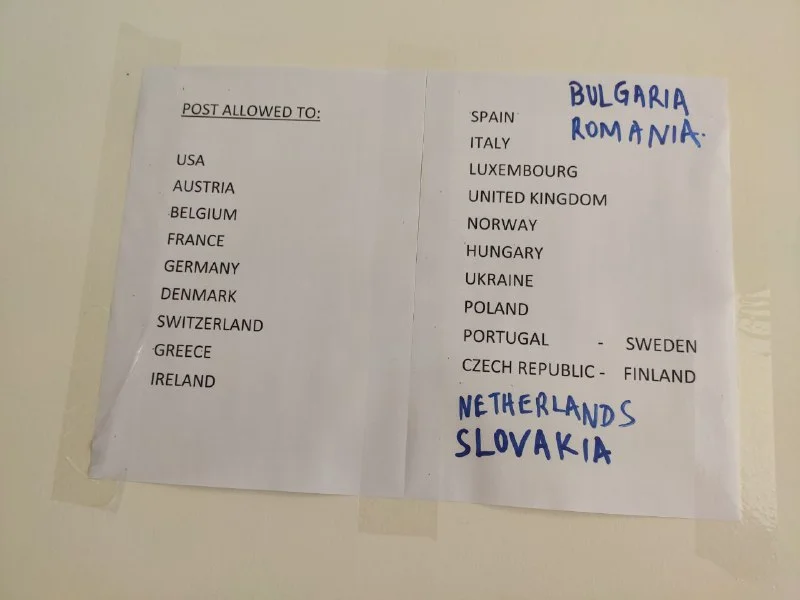 POST ALLOWED TO:
USA
AUSTRIA
BELGIUM
FRANCE
GERMANY
DENMARK
SWITZERLAND
GREECE
IRELAND
BULGARIA
ROMANIA.
SPAIN
ITALY
LUXEMBOURG
UNITED KINGDOM
NORWAY
HUNGARY
UKRAINE
POLAND
PORTUGAL - SWEDEN
CZECH REPUBLIC - FINLAND
NETHERLANDS
SLOVAKIA